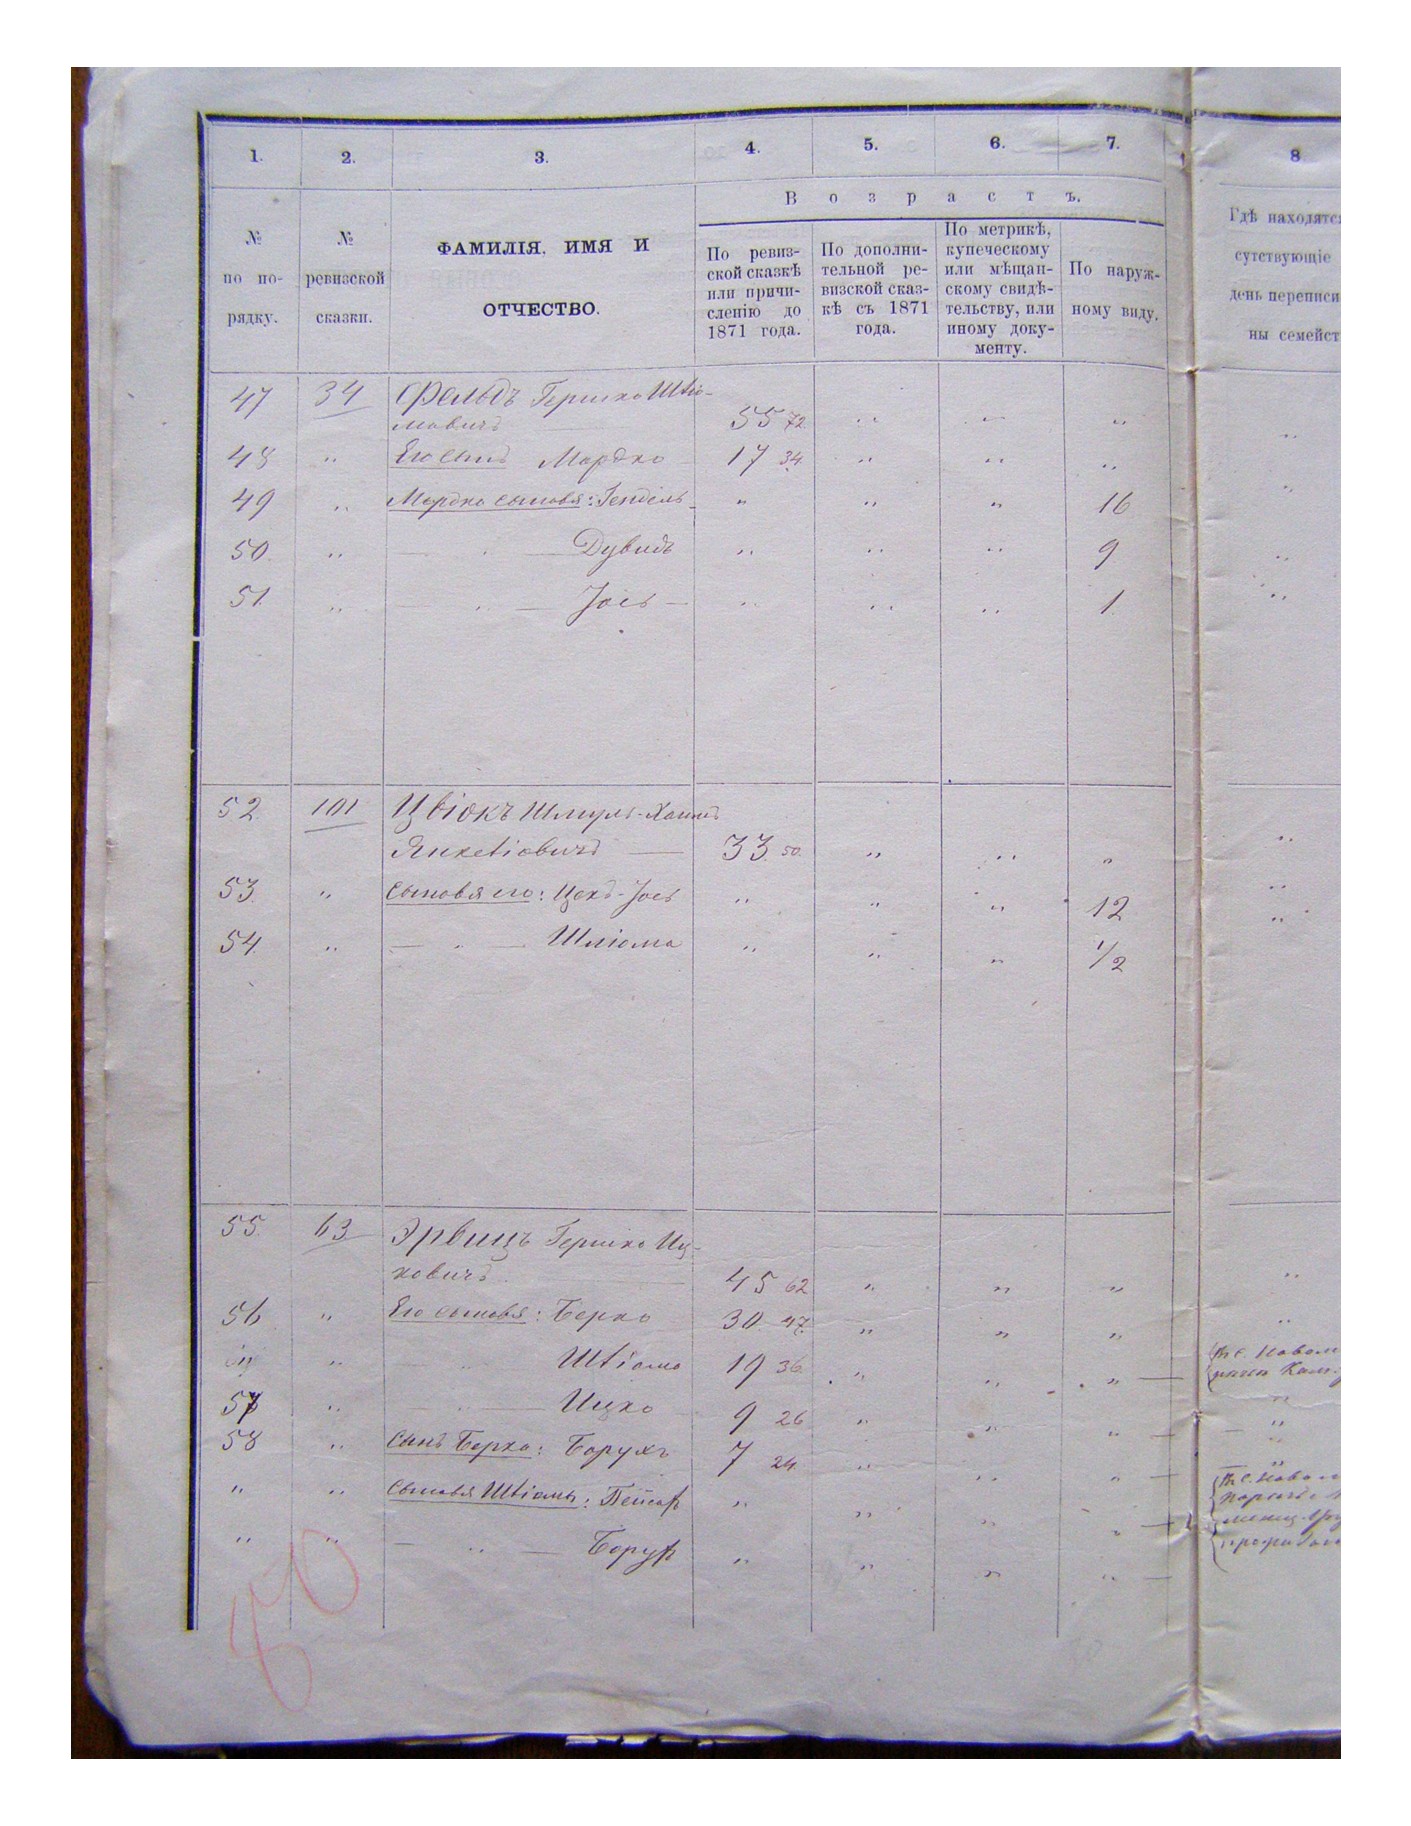 1. 2. 3. 4. 5. 6. 7. 8
Возрастъ.
№ по по-рядку.
№ ревизской сказки.
ФАМИЛІЯ, ИМЯ И
ОТЧЕСТВО.
По ревиз-
ской сказкѣ
или причи-
сленію до
1871 года.
По дополни-
тельной ре-
визской сказ-
кѣ съ 1871
года.
По метрикѣ,
купеческому
или мѣщан-
скому свидѣ-
тельству, или
иному доку-
менту.
По наруж-
ному виду.
Гдѣ находятся
сутствующіе
день переписи
ны семейст
47 34 Фельдъ Гершко Шлiо-
мовичъ 55 72 " " "
48 " Его сынъ Мордко 17 34 " " "
49 " Мордко сыновья: Гендель " " " 16
50 " — " — Дувидъ " " " 9
51 " — " — Іось — " " " 1
52 101 Цвіокъ Шмуль-Хаимъ
Янкеліовичъ — 33 50 " " "
53 " Сыновья его: Цекъ-Іось " " " 12
54 " — " — Шліома " " " 1/2
55 63 Эрвицъ Гершко Иц-
ковичъ 45 62 " " "
56 " Его сыновья: Берко 30 47 " " "
" " " Шліома 19 36 " " " —
57 " — " — Ицко 9 26 " " " —
58 " Сынъ Берка: Борухъ 7 24 " " " —
" " Сыновья Шліомы: Пейсах " " " " —
" " — " — Борух " " " " —
80